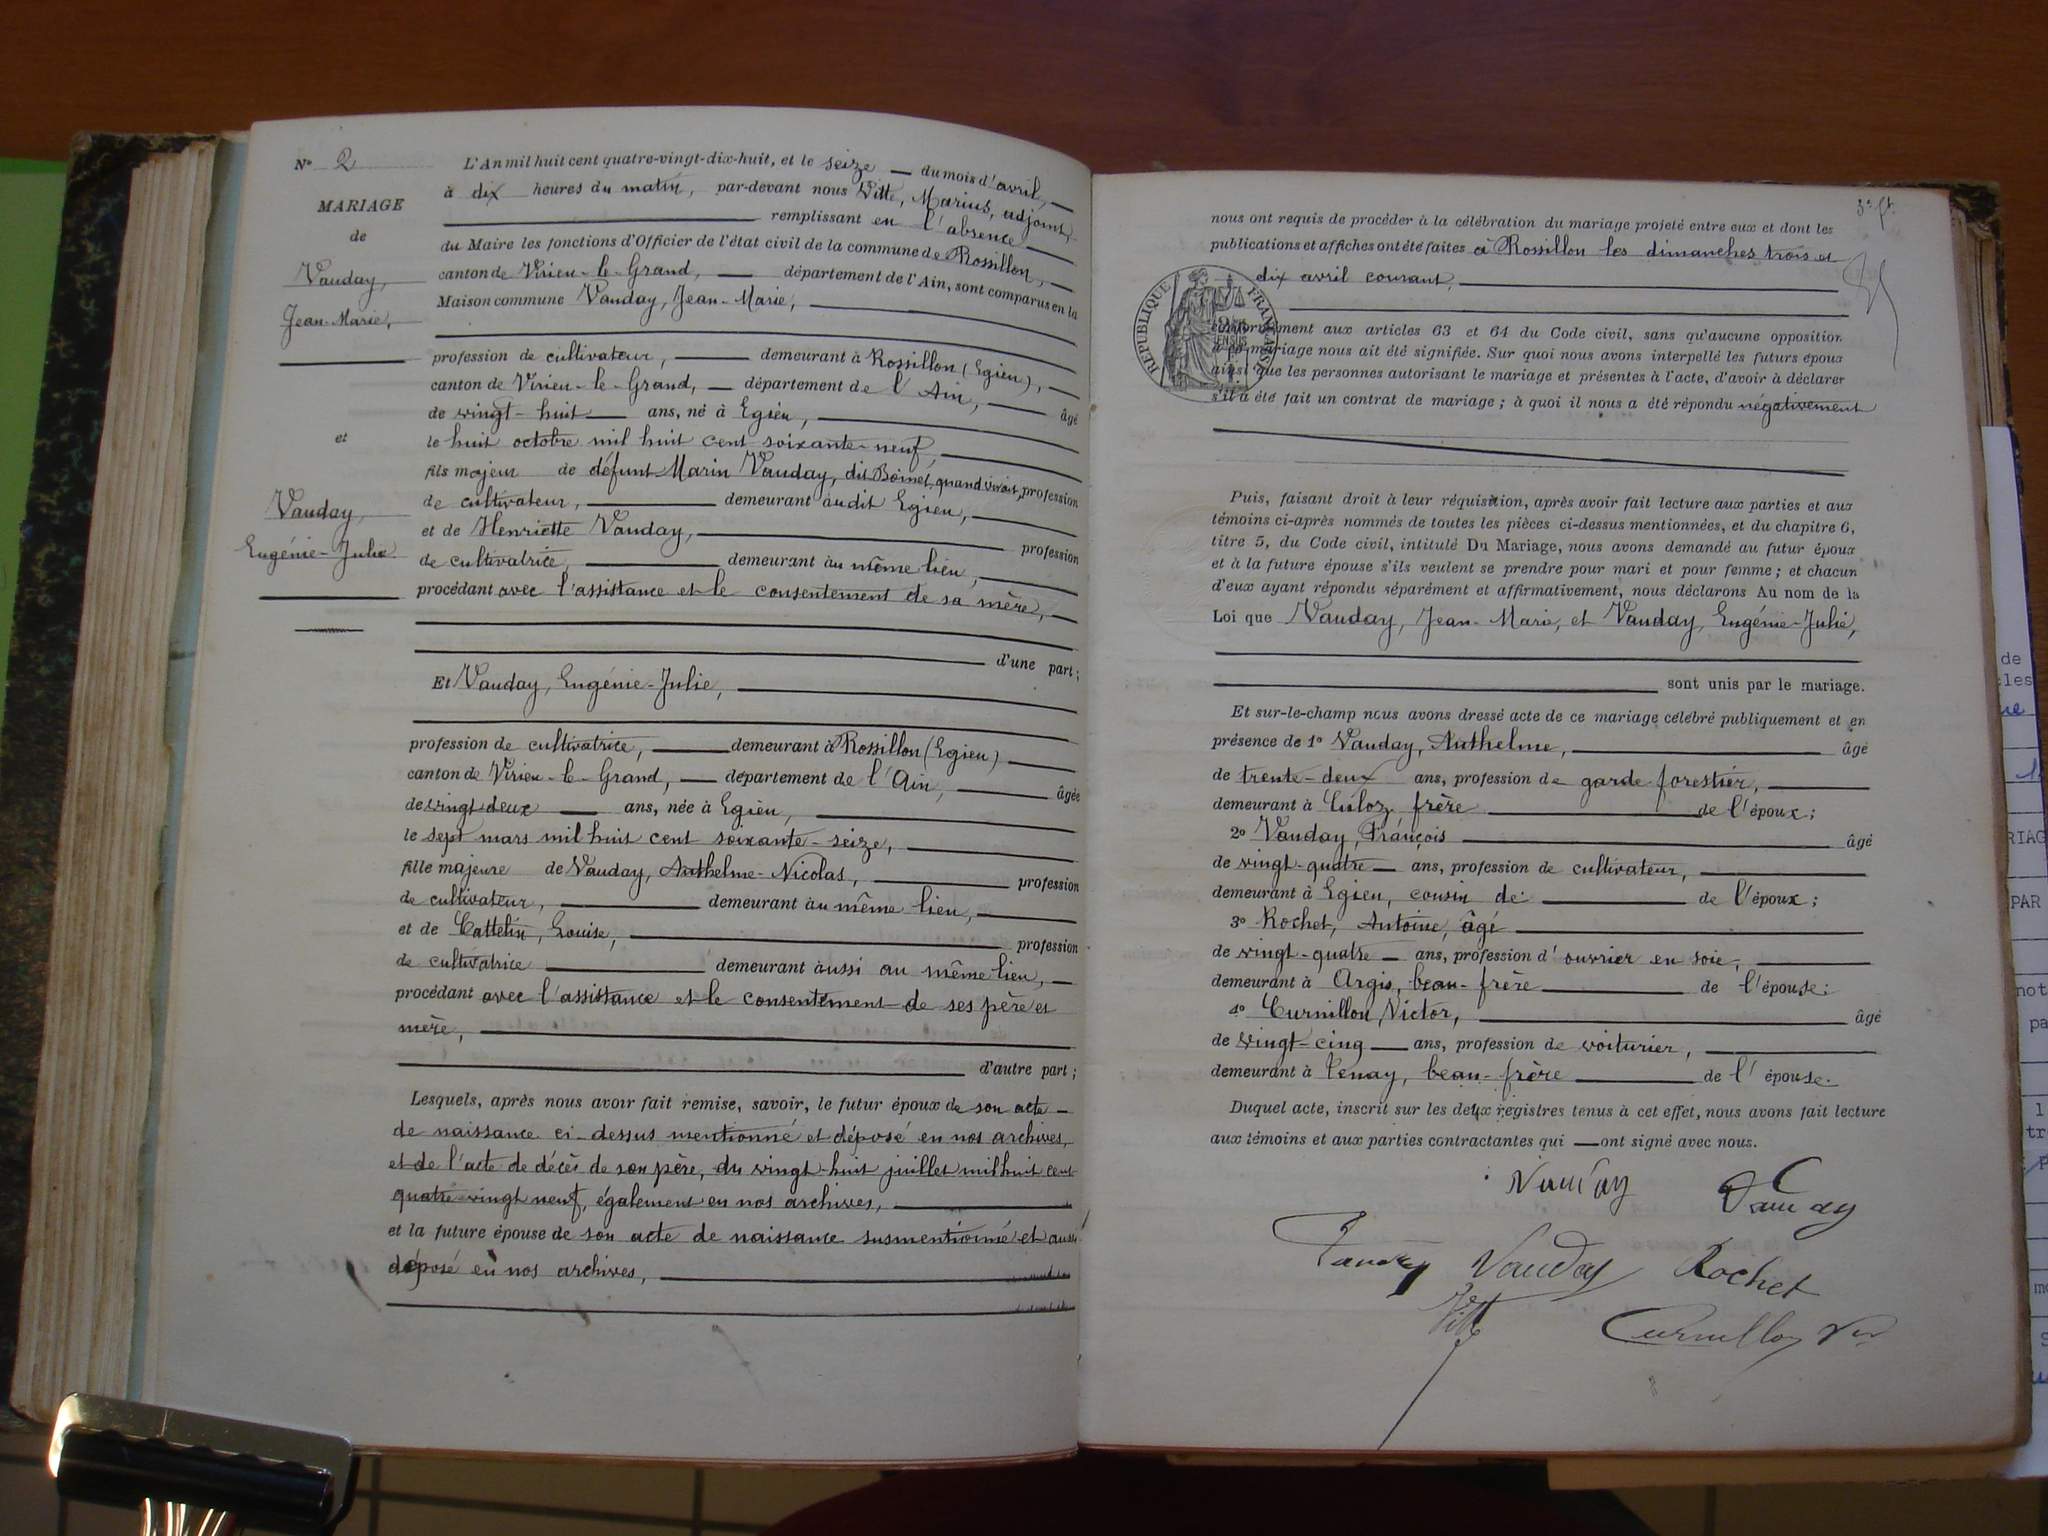 N° 2
MARIAGE
de
Vauday,
Jean-Marie,
et
Vauday,
Eugénie-Julie
L'An mil huit cent quatre-vingt-dix-huit, et le seize du mois d'avril,
à dix heures du matin, par-devant nous Vitte, Marius, adjoint,
remplissant en l'absence
du Maire les fonctions d'Officier de l'état civil de la commune de Rossillon,
canton de Virieu-le-Grand, département de l'Ain, sont comparus en la
Maison commune Vauday, Jean-Marie,
profession de cultivateur, demeurant à Rossillon (Egieu),
canton de Virieu-le-Grand, département de l'Ain, âgé
de vingt-huit ans, né à Egieu,
le huit octobre mil huit cent soixante-neuf,
fils majeur de défunt Marin Vauday, dit Boimet, quand vivait, profession
de cultivateur, demeurant audit Egieu,
et de Henriette Vauday, profession
de cultivatrice, demeurant au même lieu,
procédant avec l'assistance et le consentement de sa mère,
d'une part;
Et Vauday, Eugénie-Julie,
profession de cultivatrice, demeurant à Rossillon (Egieu)
canton de Virieu-le-Grand, département de l'Ain, âgée
de vingt deux ans, née à Egieu,
le sept mars mil huit cent soixante-seize,
fille majeure de Vauday, Anthelme-Nicolas, profession
de cultivateur, demeurant au même lieu,
et de Cattelin, Louise, profession
de cultivatrice demeurant aussi au même lieu,
procédant avec l'assistance et le consentement de ses père et
mère,
d'autre part;
Lesquels, après nous avoir fait remise, savoir, le futur époux de son acte
de naissance ci-dessus mentionné et déposé en nos archives,
et de l'acte de décès de son père, du vingt-huit juillet mil huit cent
quatre-vingt neuf, également en nos archives,
et la future épouse de son acte de naissance susmentionné et aussi
déposé en nos archives,
nous ont requis de procéder à la célébration du mariage projeté entre eux et dont les
publications et affiches ont été faites à Rossillon les dimanches trois et
dix avril courant,
RÉPUBLIQUE FRANÇAISE
conformément aux articles 63 et 64 du Code civil, sans qu'aucune opposition
à ce mariage nous ait été signifiée. Sur quoi nous avons interpellé les futurs époux
ainsi que les personnes autorisant le mariage et présentes à l'acte, d'avoir à déclarer
s'il a été fait un contrat de mariage; à quoi il nous a été répondu négativement
Puis, faisant droit à leur réquisition, après avoir fait lecture aux parties et aux
témoins ci-après nommés de toutes les pièces ci-dessus mentionnées, et du chapitre 6,
titre 5, du Code civil, intitulé Du Mariage, nous avons demandé au futur époux
et à la future épouse s'ils veulent se prendre pour mari et pour femme; et chacun
d'eux ayant répondu séparément et affirmativement, nous déclarons Au nom de la
Loi que Vauday, Jean-Marie, et Vauday, Eugénie-Julie,
sont unis par le mariage.
Et sur-le-champ nous avons dressé acte de ce mariage célébré publiquement et en
présence de 1° Vauday, Anthelme, âgé
de trente-deux ans, profession de garde forestier,
demeurant à Culoz, frère de l'époux;
2° Vauday, François âgé
de vingt-quatre ans, profession de cultivateur,
demeurant à Egieu, cousin de l'époux;
3° Rochet, Antoine, âgé
de vingt-quatre ans, profession d'ouvrier en soie,
demeurant à Argis, beau-frère de l'épouse;
4° Curnillon, Victor, âgé
de vingt-cinq ans, profession de voiturier,
demeurant à Tenay, beau-frère de l'épouse.
Duquel acte, inscrit sur les deux registres tenus à cet effet, nous avons fait lecture
aux témoins et aux parties contractantes qui ont signé avec nous.
Vauday Vauday
Vauday Vauday Rochet
Vitte Curnillon Vor